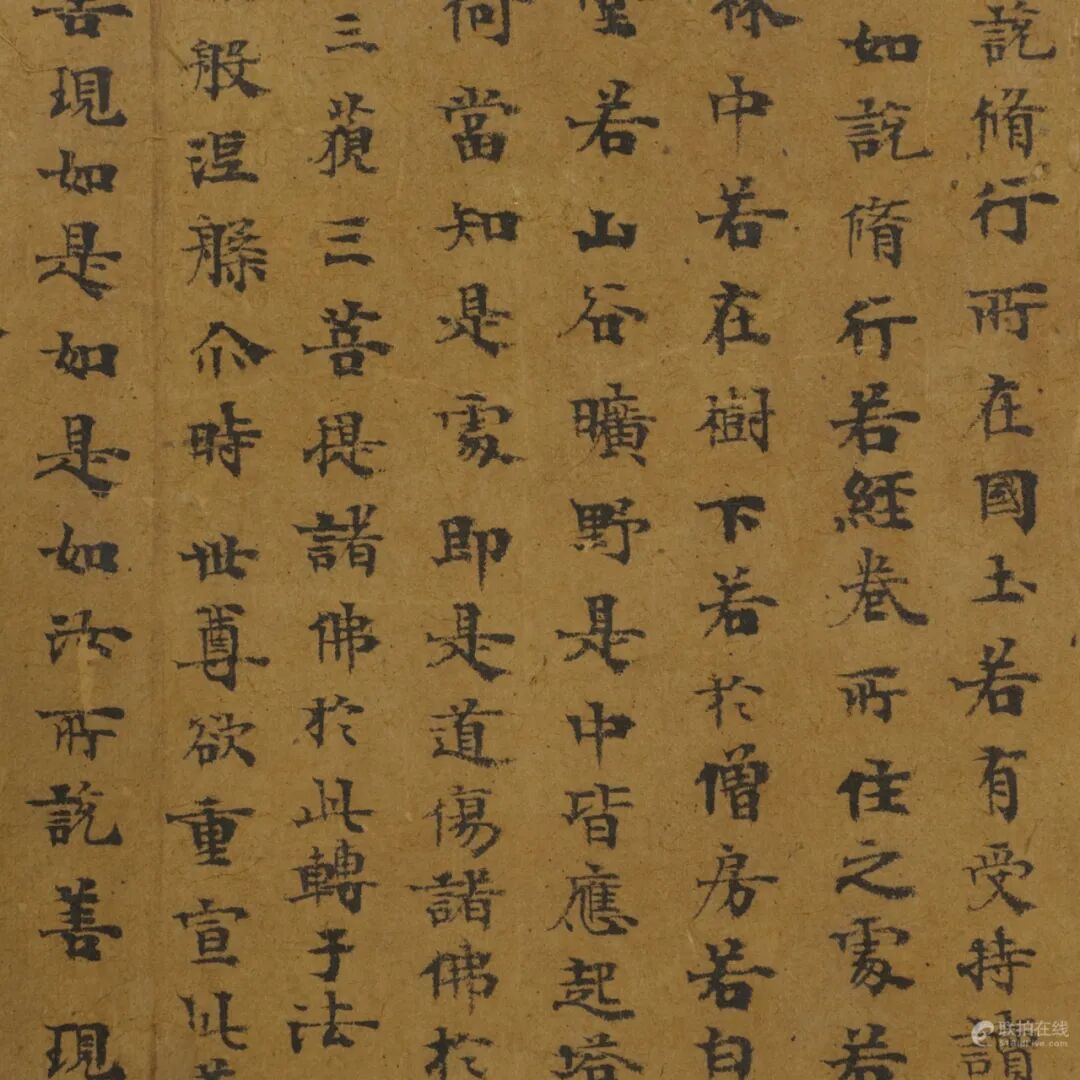 說脩行所在國土若有受持讀
如說脩行若經卷所住之處若
林中若在樹下若於僧房若白
堂若山谷曠野是中皆應起塔
何當知是處即是道傷諸佛於
三藐三菩提諸佛於此轉于法
般涅槃尒時世尊欲重宣此
善現如是如是如汝所說善現
联拍在线
51bidlive.com